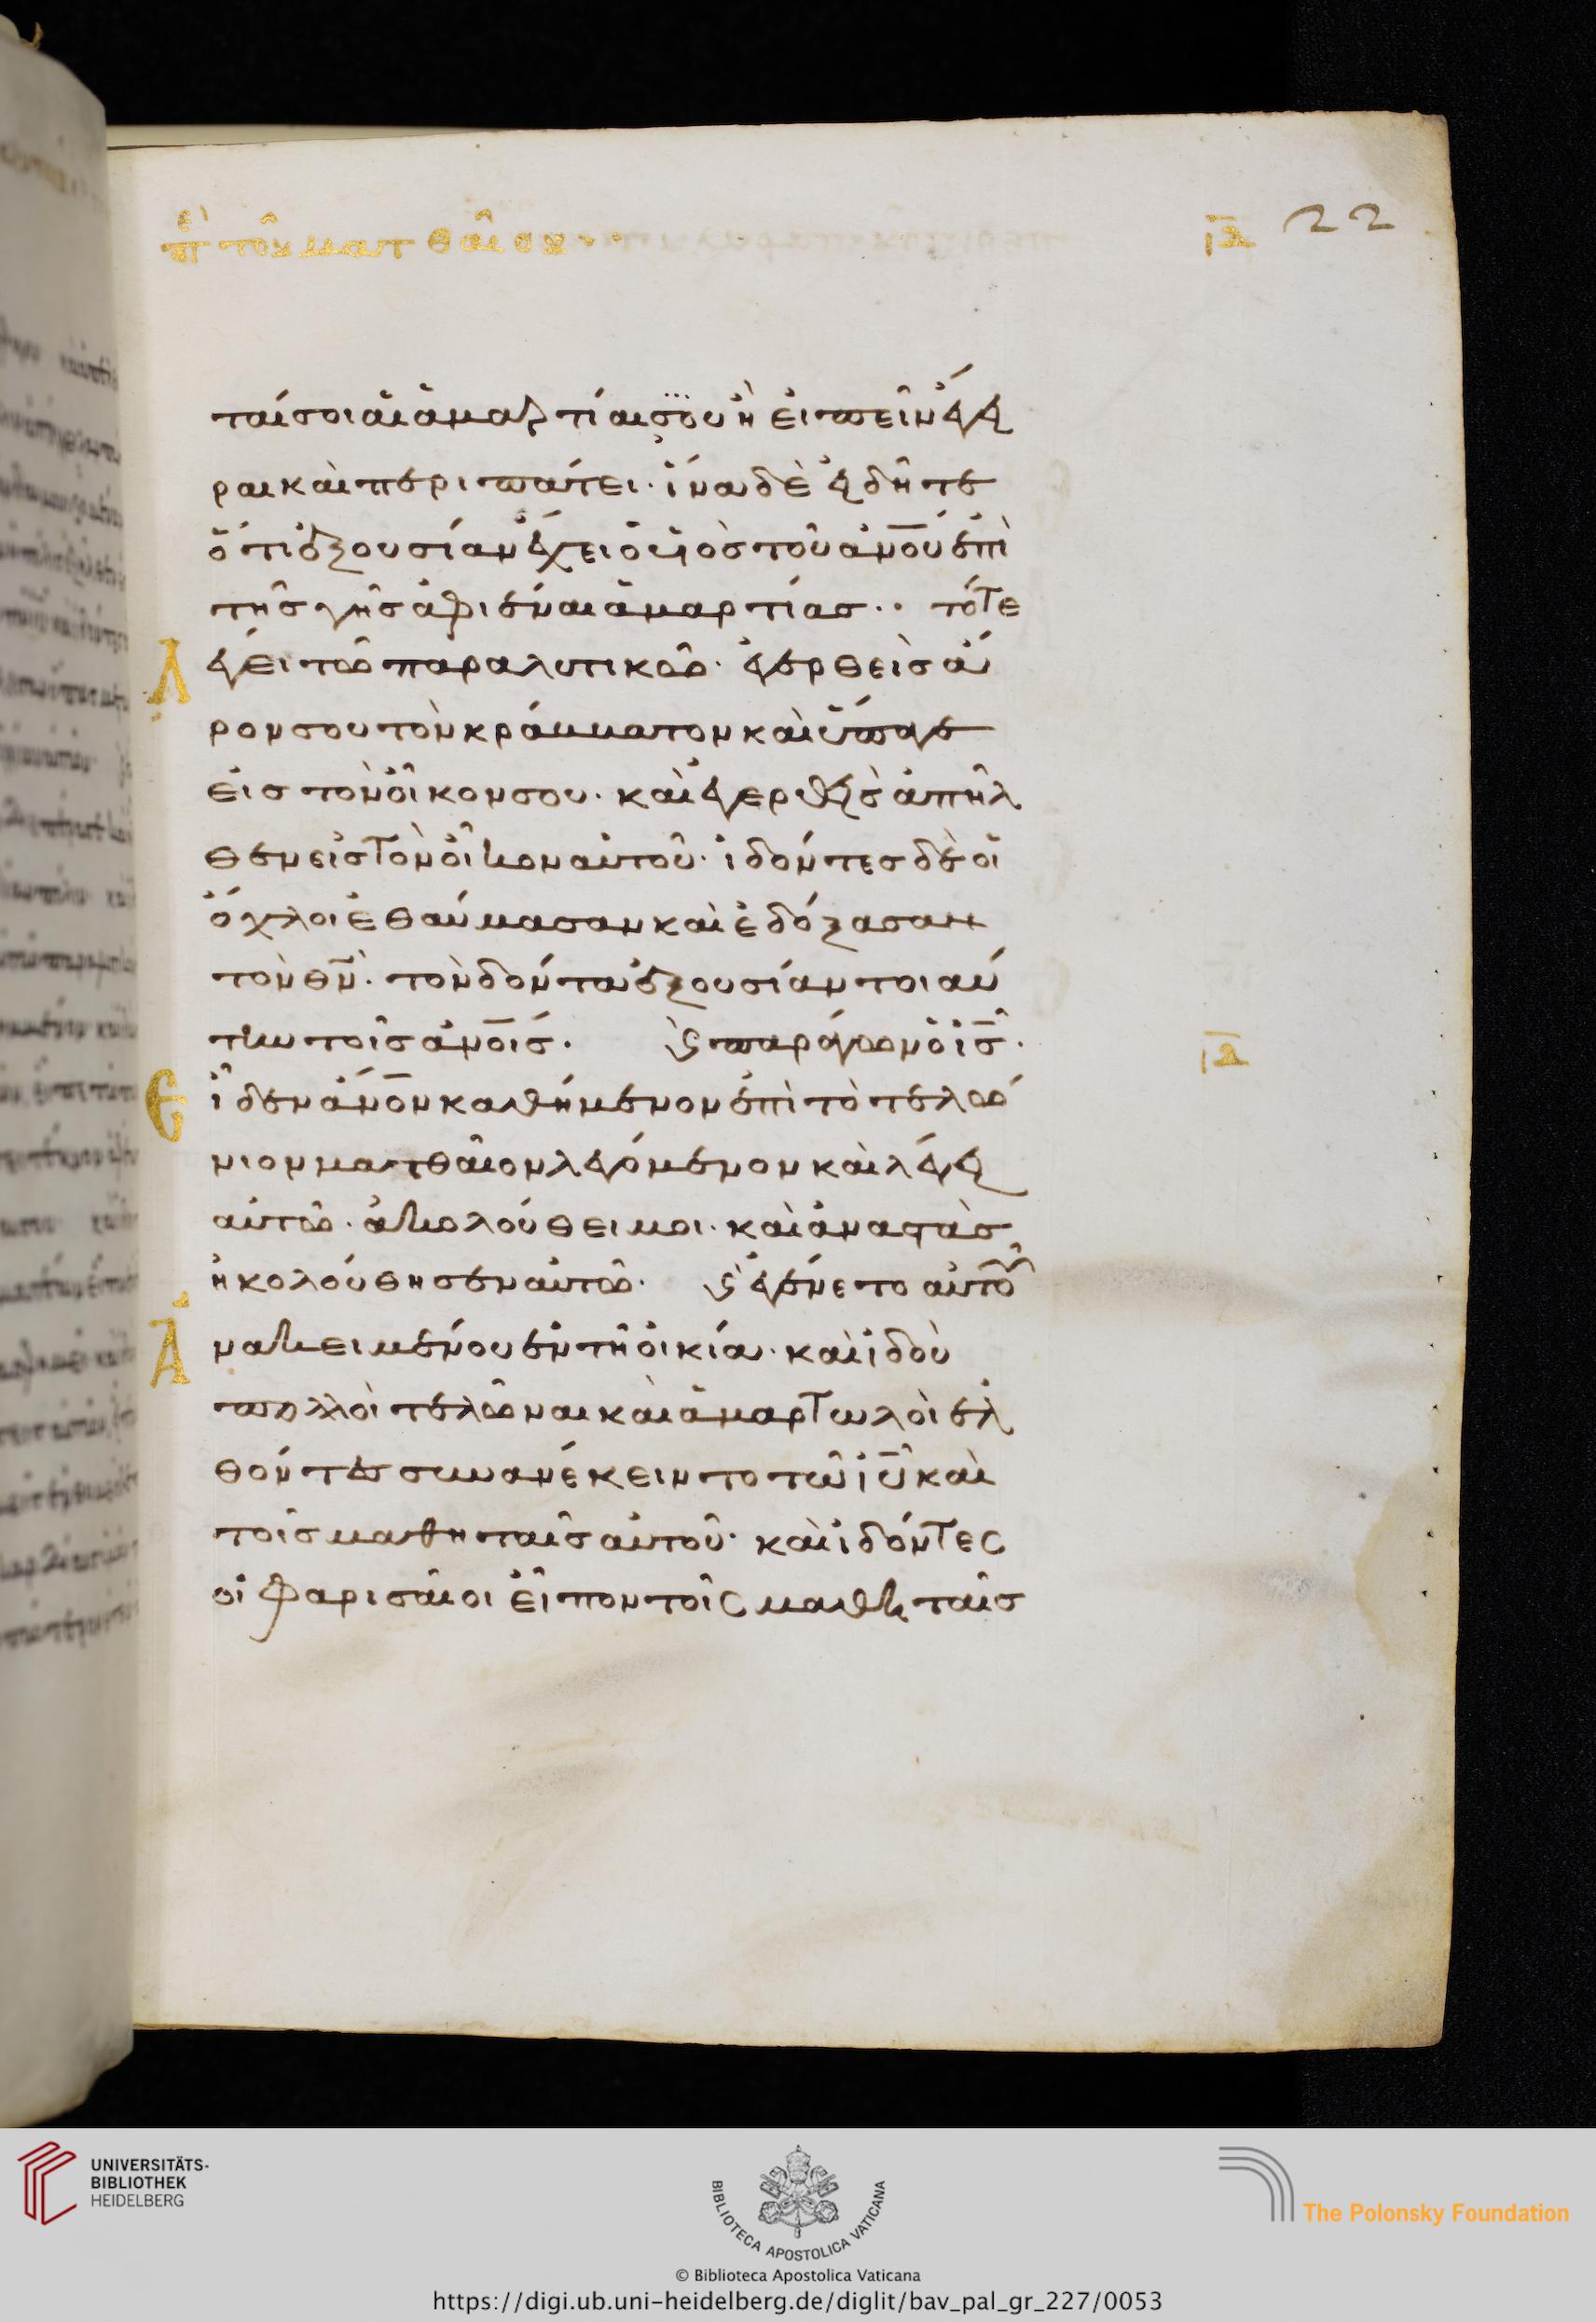 περὶ τοῦ ματθαίου
ιδ 22
ταί σοι αἱ ἁμαρτίαι σου ἢ εἰπεῖν ἔγει
ραι καὶ περιπάτει· ἵνα δὲ εἰδῆτε
ὅτι ἐξουσίαν ἔχει ὁ υἱὸς τοῦ ἀνου ἐπὶ
τῆς γῆς ἀφιέναι ἁμαρτίας·· τότε
λέγει τῶ παραλυτικῶ· ἐγερθεὶς ἆ
ρον σου τὸν κράββατον καὶ ὕπαγε
εἰς τὸν οἶκον σου· καὶ ἐγερθεὶς ἀπῆλ
θεν εἰς τὸν οἶκον αὐτοῦ· ἰδόντες δὲ οἱ
ὄχλοι ἐθαύμασαν καὶ ἐδόξασαν
τὸν θν· τὸν δόντα ἐξουσίαν τοιαύ
την τοῖς ἀνοις· ϛ παράγων ὁ ις·
ιδ
εἶδεν ἄνον καθήμενον ἐπὶ τὸ τελώ
νιον ματθαῖον λεγόμενον καὶ λέγει
αὐτῶ· ἀκολούθει μοι· καὶ ἀναστὰς
ἠκολούθησεν αὐτῶ· ϛ ἐγένετο αὐτοῦ
ἀνακειμένου ἐν τῆ οἰκία· καὶ ἰδοὺ
πολλοὶ τελῶναι καὶ ἁμαρτωλοὶ ἐλ
θόντες συνανέκειντο τῶ ιυ καὶ
τοῖς μαθηταῖς αὐτοῦ· καὶ ἰδόντες
οἱ φαρισαῖοι εἶπον τοῖς μαθηταῖς
UNIVERSITÄTS-
BIBLIOTHEK
HEIDELBERG
BIBLIOTECA APOSTOLICA VATICANA
The Polonsky Foundation
© Biblioteca Apostolica Vaticana
https://digi.ub.uni-heidelberg.de/diglit/bav_pal_gr_227/0053